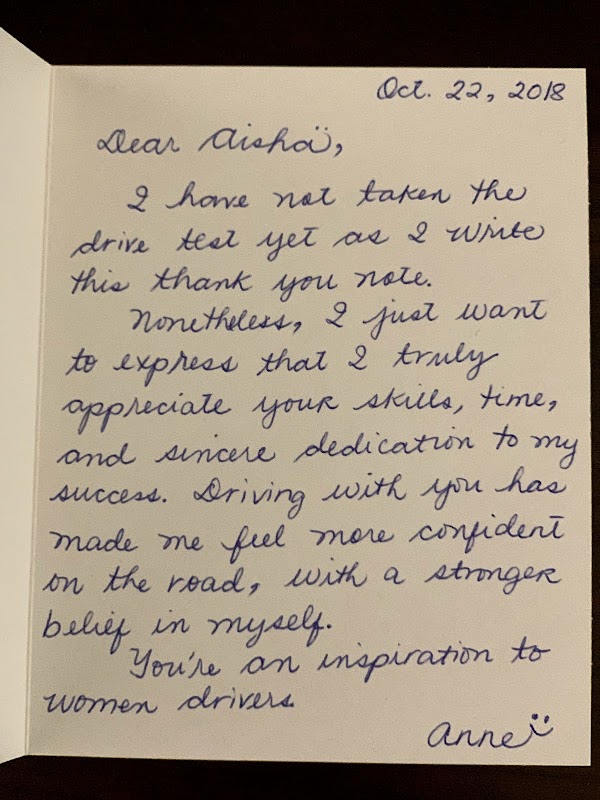 Oct. 22, 2018
Dear Aisha,
I have not taken the
drive test yet as I write
this thank you note.
Nonetheless, I just want
to express that I truly
appreciate your skills, time,
and sincere dedication to my
success. Driving with you has
made me feel more confident
on the road, with a stronger
belief in myself.
You're an inspiration to
women drivers.
Anne